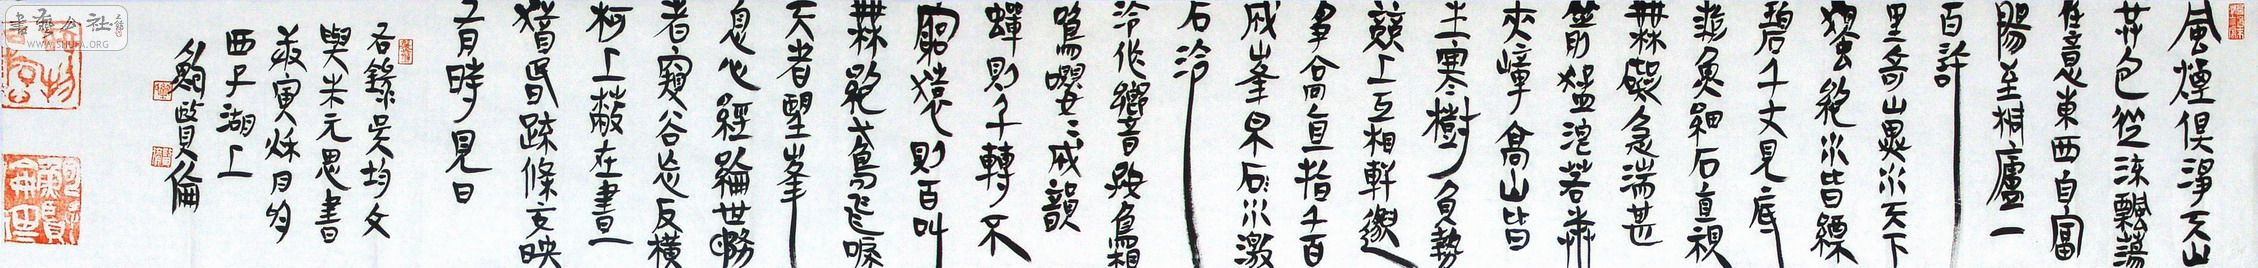 風煙俱淨天山
共色從流飄蕩
任意東西自富
陽至桐廬一
百許
里奇山異水天下
獨絕水皆縹
碧千丈見底
游魚細石直視
無礙急湍甚
箭猛浪若奔
夾嶂高山皆
生寒樹負勢
競上互相軒邈
爭高直指千百
成峯泉石水激
石泠
泠作響好鳥相
鳴嚶〻成韻
蟬則千轉不
窮猿則百叫
無絕鳶飛唳
天者望峯
息心經綸世務
者窺谷忘反橫
柯上蔽在晝
猶昏疏條交映
有時見日
右錄吳均文
與朱元思書
戊寅秋月於
西子湖上
鮑賢倫
書藝公社
WWW.SHUFA.ORG